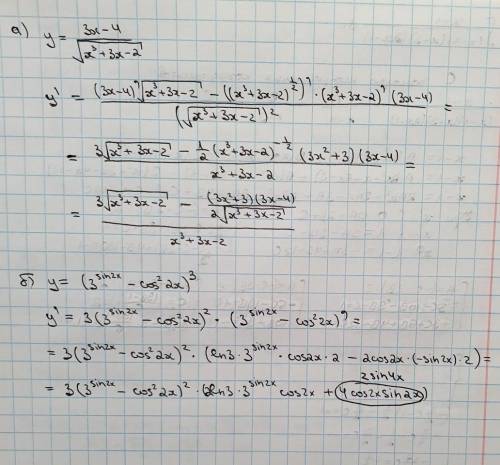 а) y = (3x-4) / √(x³+3x-2)
y' = ((3x-4)'√(x³+3x-2) - ((x³+3x-2)^(1/2))' · (x³+3x-2)' (3x-4)) / (√(x³+3x-2))² =
= (3√(x³+3x-2) - 1/2 (x³+3x-2)^(-1/2) (3x²+3)(3x-4)) / (x³+3x-2) =
= (3√(x³+3x-2) - (3x²+3)(3x-4) / (2√(x³+3x-2))) / (x³+3x-2)
б) y = (3^(sin2x) - cos²2x)³
y' = 3(3^(sin2x) - cos²2x)² · (3^(sin2x) - cos²2x)' =
= 3(3^(sin2x) - cos²2x)² · (ln3·3^(sin2x) · cos2x·2 - 2cos2x·(-sin2x)·2) =
2sin4x
= 3(3^(sin2x) - cos²2x)² · (2ln3·3^(sin2x) cos2x + 4cos2xsin2x)